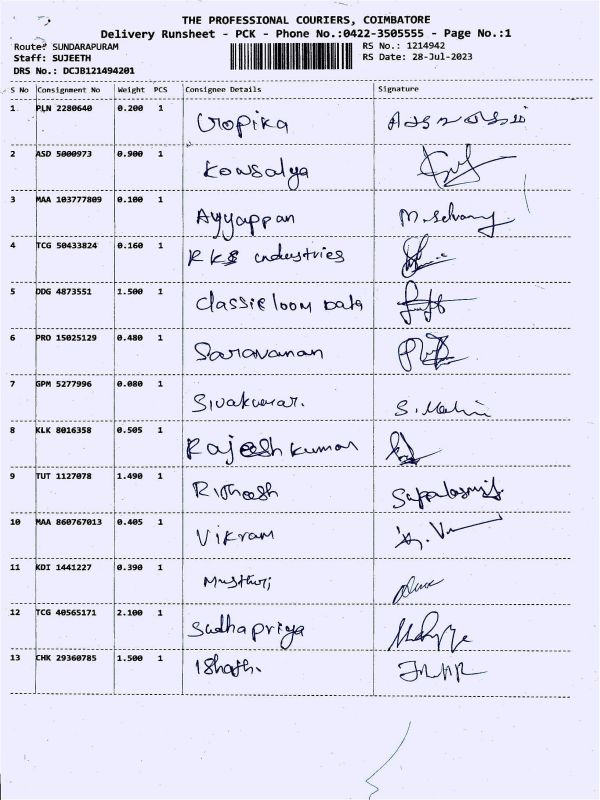 THE PROFESSIONAL COURIERS, COIMBATORE
Delivery Runsheet - PCK - Phone No.:0422-3505555 - Page No.:1
Route: SUNDARAPURAM RS No.: 1214942
Staff: SUJEETH RS Date: 28-Jul-2023
DRS No.: DCJB121494201
S No Consignment No Weight PCS Consignee Details Signature
1 PLN 2280640 0.200 1 Gopika
2 ASD 5000973 0.900 1 Kowsalya
3 MAA 103777809 0.100 1 Ayyappan M. Selvamy
4 TCG 50433824 0.160 1 RKS industries
5 DDG 4873551 1.500 1 Classic loom Data
6 PRO 15025129 0.480 1 Saravanan
7 GPM 5277996 0.080 1 Sivakumar. S. Malini
8 KLK 8016358 0.505 1 Rajeesh kumar
9 TUT 1127078 1.490 1 Ritheesh
10 MAA 860767013 0.405 1 Vikram
11 KDI 1441227 0.390 1
12 TCG 40565171 2.100 1 Sudhapriya
13 CHK 29360785 1.500 1